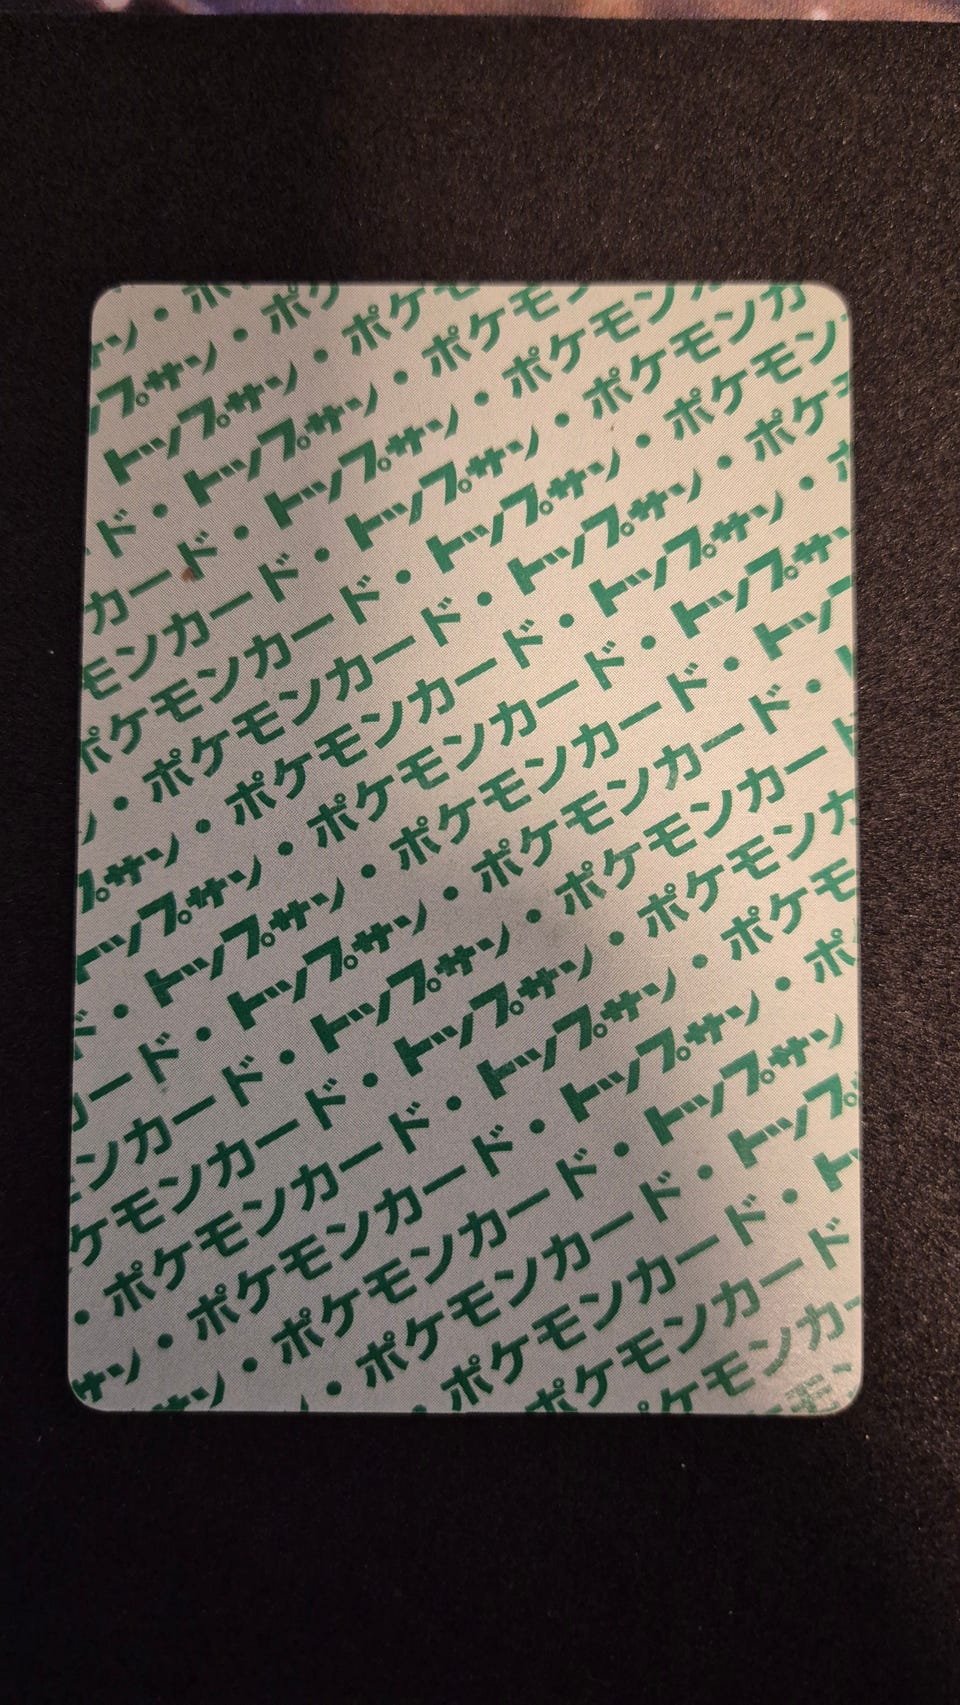 ン・ポ
ップサン・ポケ
トップサン・ポケモ
ド・トップサン・ポケモン
カード・トップサン・ポケモン
モンカード・トップサン・ポケモンカ
ポケモンカード・トップサン・ポケモン
・ポケモンカード・トップサン・ポケ
プサン・ポケモンカード・トップサン・
トップサン・ポケモンカード・トップサ
ド・トップサン・ポケモンカード・トッ
カード・トップサン・ポケモンカード・
ンカード・トップサン・ポケモンカー
ケモンカード・トップサン・ポケモンカ
・ポケモンカード・トップサン・ポケモ
サン・ポケモンカード・トップサン・ポ
サン・ポケモンカード・トップサン
・ポケモンカード・トップ
ポケモンカード・ト
ポケモンカード
ケモンカー
モ